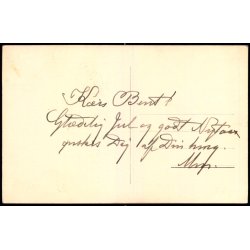 Kære Bent!
Glædelig Jul og godt Nytaar
ønskes Dig af Din